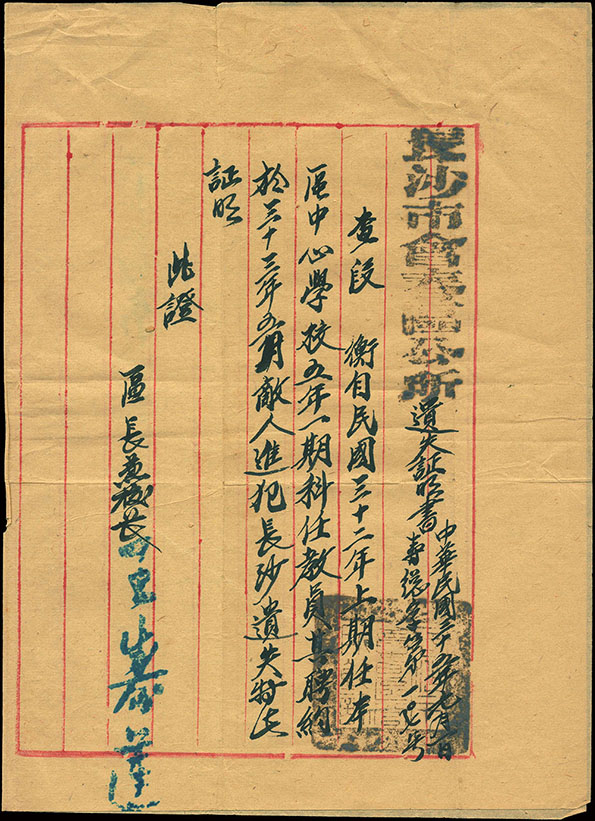 長沙市會春區公所
遺失証明書
中華民國三十五年九月 日
春總字第一 號
查段 衡自民國三十二年上期任本
區中心學校五年一期科任教員其聘約
於三十三年五月敵人進犯長沙遺失特此
証明
此證
區長兼校長